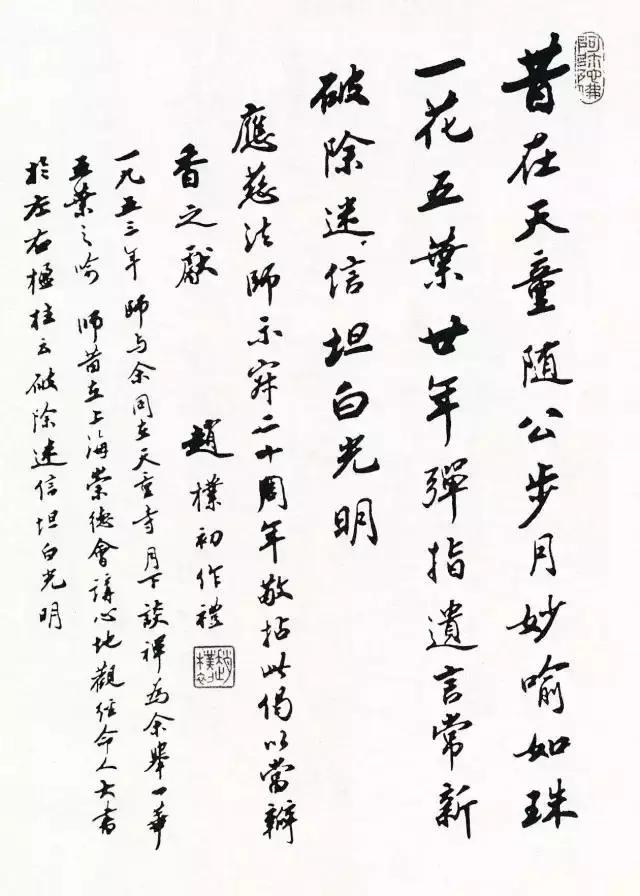 昔在天童随公步月妙喻如珠
一花五葉廿年彈指遺言常新
破除迷信坦白光明
應慈法師示寂二十周年敬拈此偈以當瓣
香之獻
趙樸初作禮
一九五三年師与余同在天童寺月下談禅為余舉一華
五葉之喻 師昔在上海崇德會講心地觀經命人大書
於左右楹柱云破除迷信坦白光明
阿弥陀佛
趙樸初